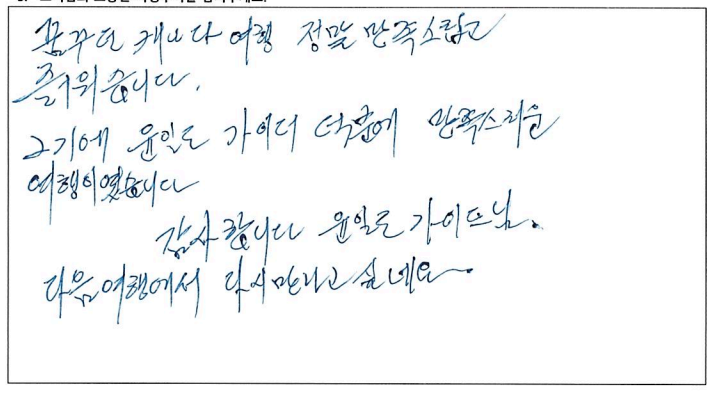 꿈꾸던 캐나다 여행 정말 만족스럽고
즐거워습니다.
그기에 윤일로 가이더 덕분에 만족스러운
여행이였습니다
감사합니다 윤일로 가이드님.
다음여행에서 다시만나고 싶네요~.